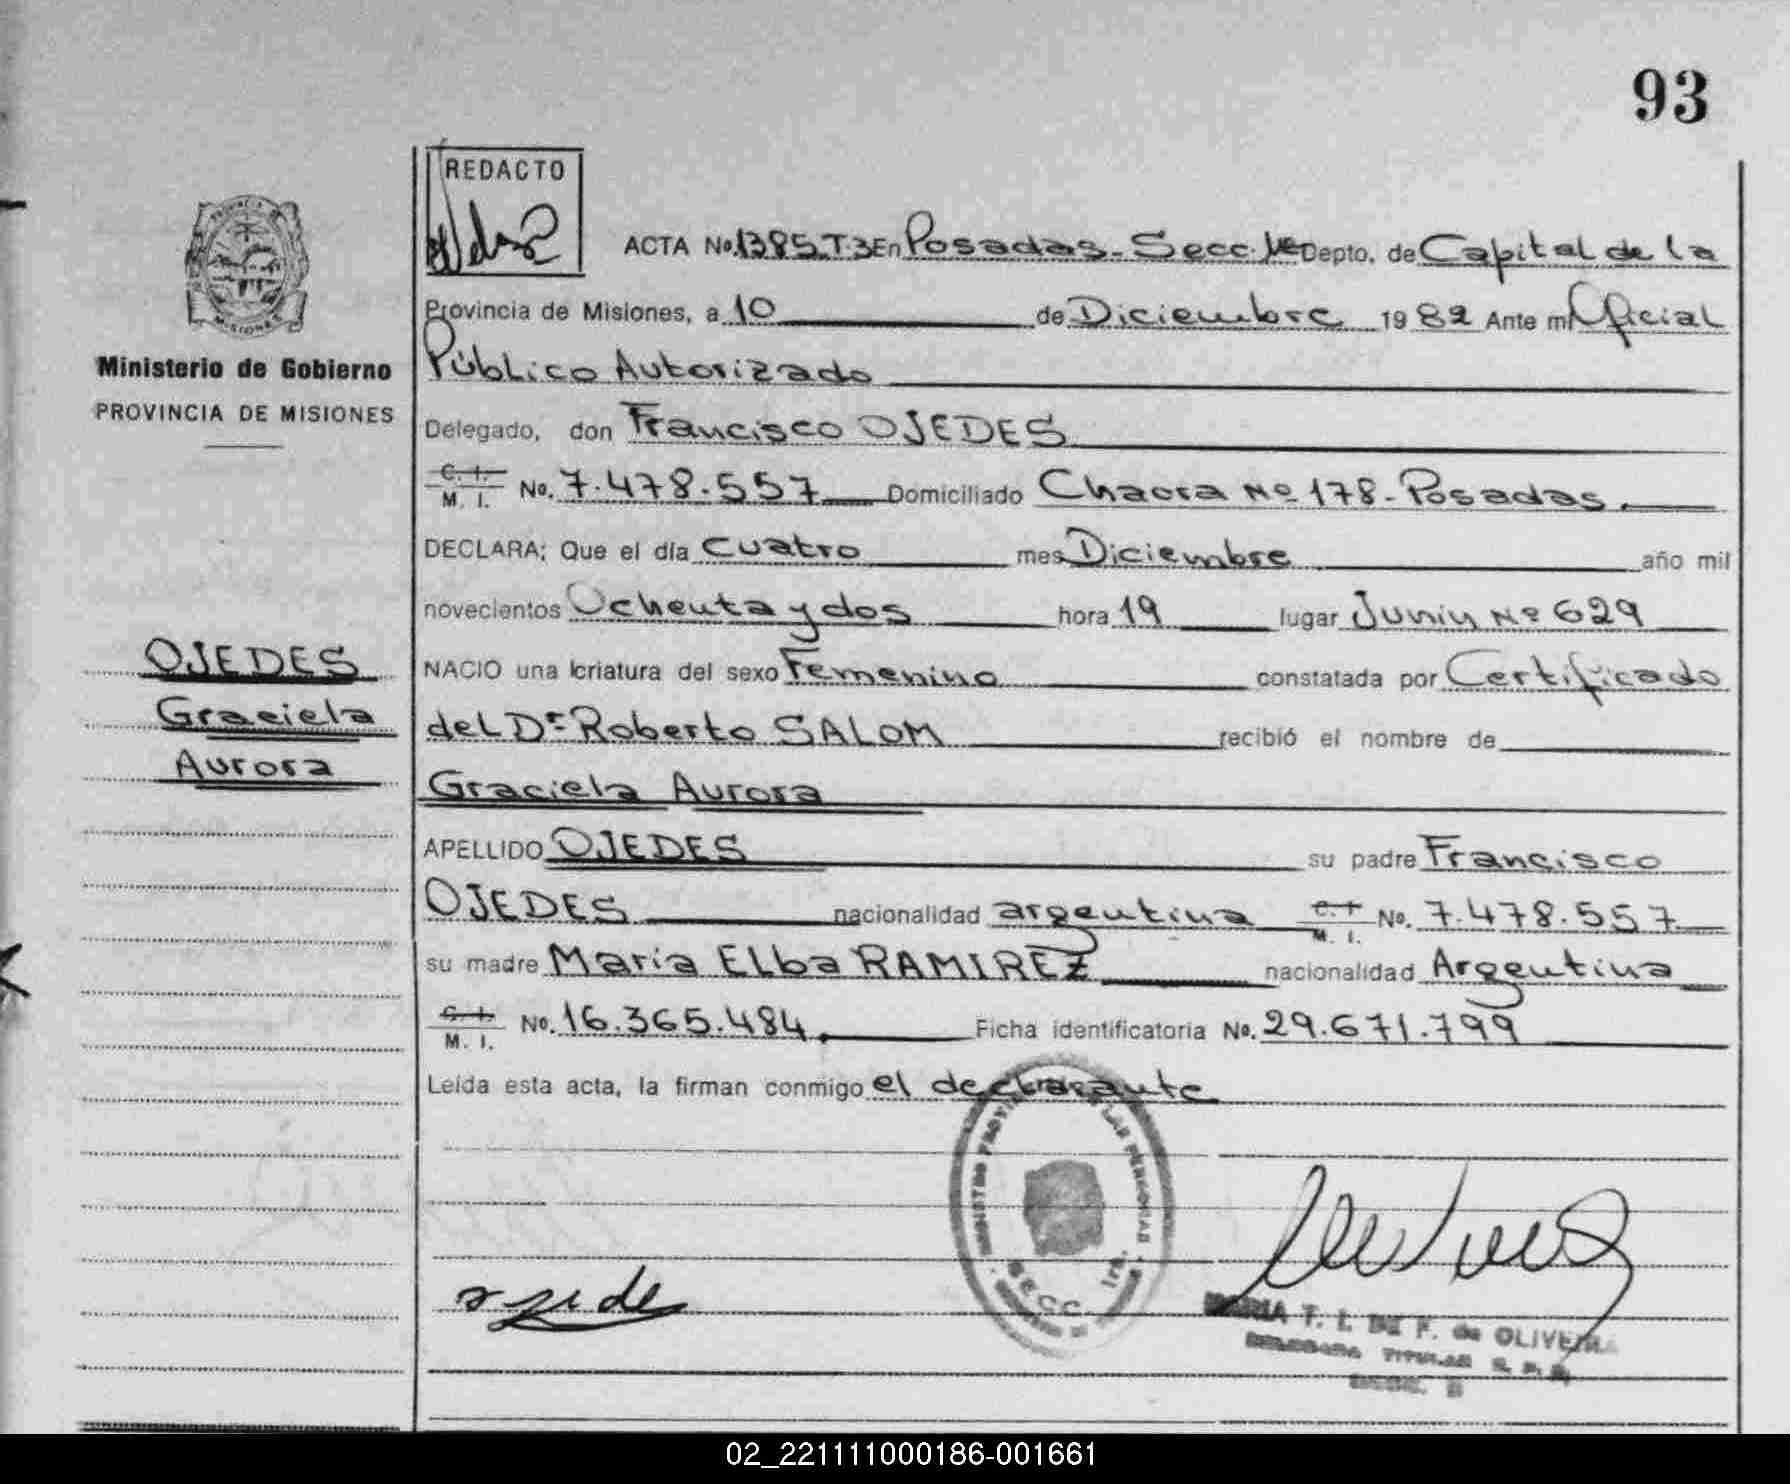 93
REDACTO
PROVINCIA DE
MISIONES
Ministerio de Gobierno
PROVINCIA DE MISIONES
OJEDES
Graciela
Aurora
ACTA No. 1385.T.3 En Posadas-Secc.1ª Depto. de Capital de la
Provincia de Misiones, a 10 de Diciembre 1982 Ante mi Oficial
Público Autorizado
Delegado, don Francisco OJEDES
C. I.
M. I. No. 7.478.557 Domiciliado Chacra Nº 178-Posadas
DECLARA; Que el día cuatro mes Diciembre año mil
novecientos Ochenta y dos hora 19 lugar Junin Nº 629
NACIO una criatura del sexo Femenino constatada por Certificado
del Dr Roberto SALOM recibió el nombre de
Graciela Aurora
APELLIDO OJEDES su padre Francisco
OJEDES nacionalidad argentina C. I. M. I. No. 7.478.557
su madre Maria Elba RAMIREZ nacionalidad Argentina
C. I.
M. I. No. 16.365.484. Ficha identificatoria No. 29.671.799
Leída esta acta, la firman conmigo el declarante
LAS PERSONAS
SECC. 1ra.
MARIA T. I. DE F. de OLIVEIRA
DELEGADA TITULAR
02_221111000186-001661